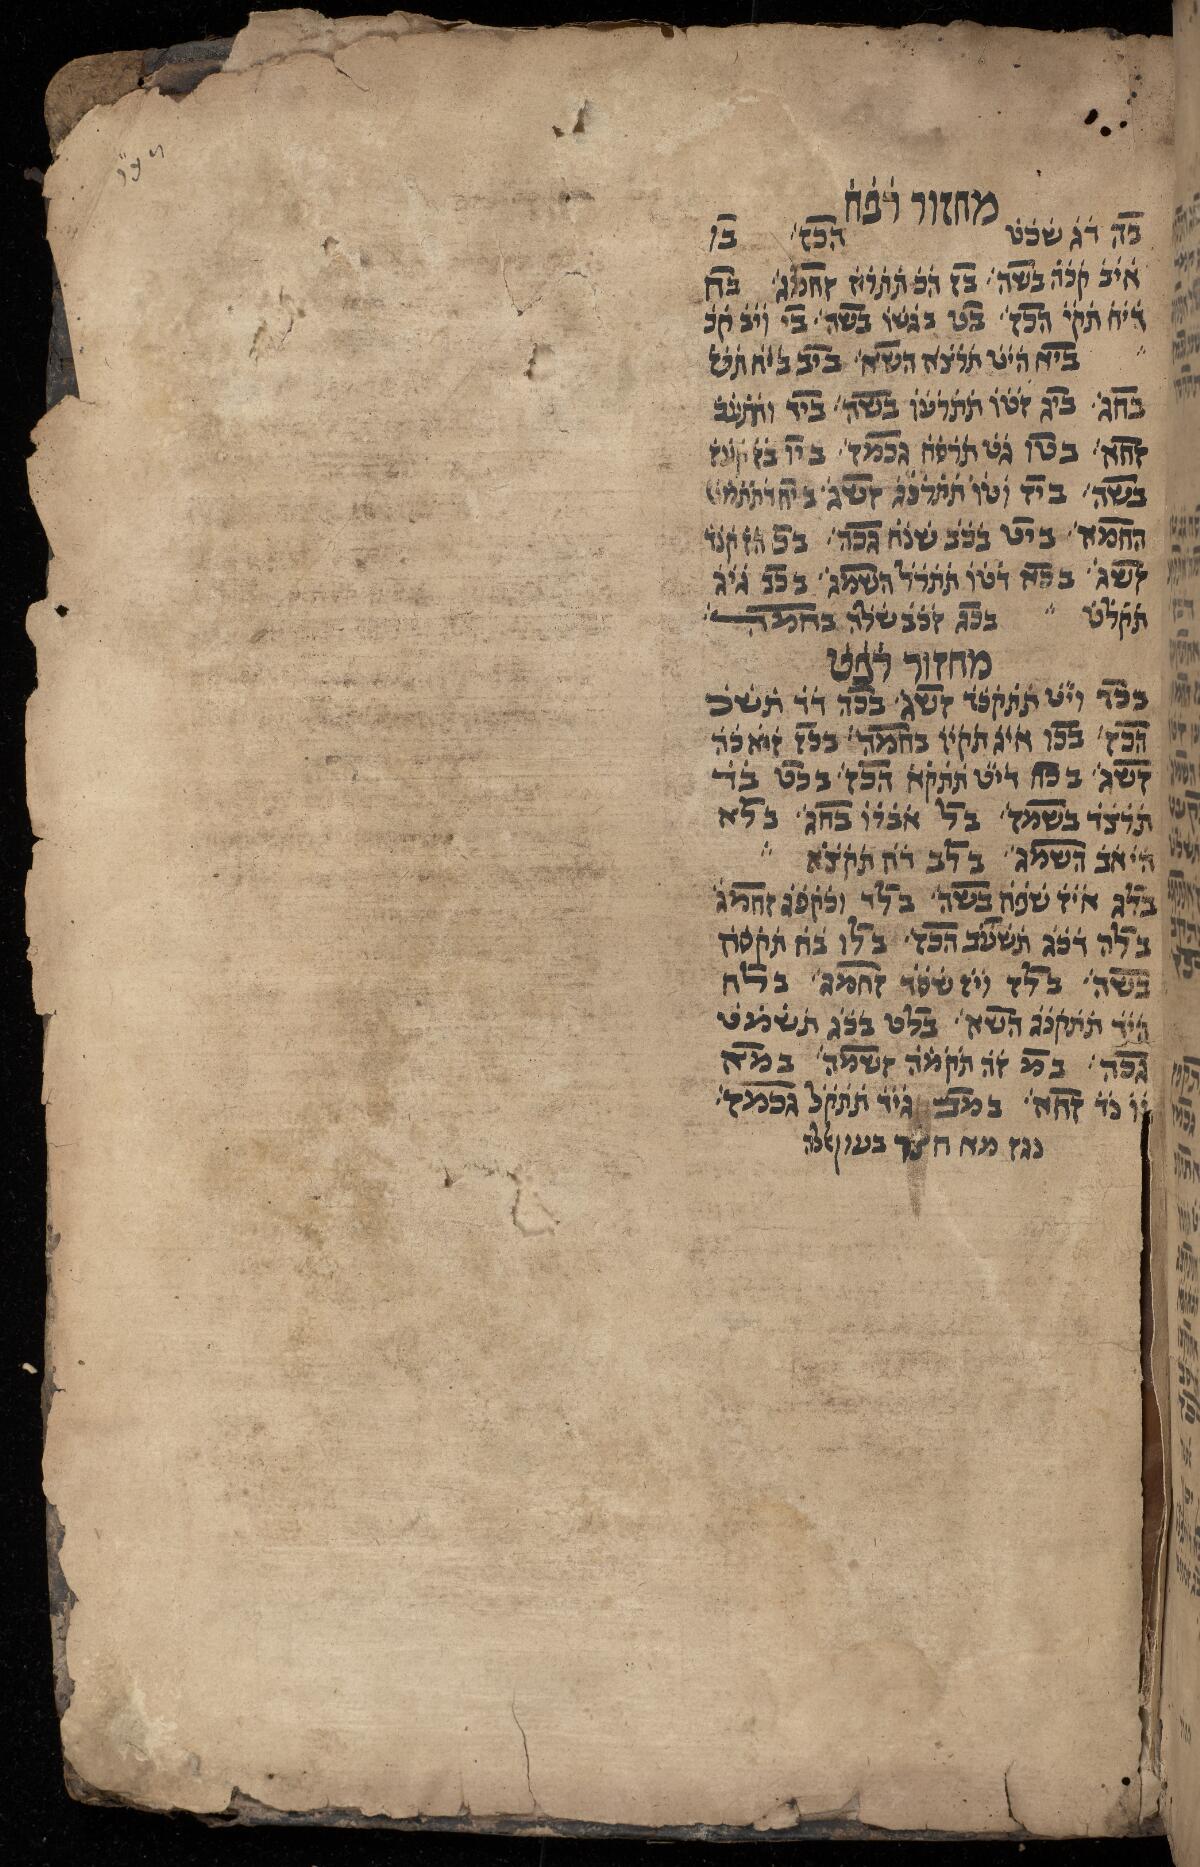 מחזור רפח
בה דג שכט הכז׳ בו
איב קכה בשה׳ בז הכ תתרוז זחמג׳ בח
דיח תקו הכז׳ בט בגטו בשה׳ בי ויב קכ
ביא היט תרצא השא׳ ביב ביח תש
בחג׳ ביג זטו תתרעו בשה׳ ביד ותתעב
זחא׳ בטו גט תרסח גכמז׳ ביו בז קעז
בשה׳ ביז וטו תתרכג זשג׳ ביח
החמא׳ ביט בכב שנח גכה׳ בכ הז קנד
זשג׳ בכא דטו תתרל השמג׳ בכב גיג
תקלט בכג זכב שלה בחמה
מחזור רפט
בכד ויט תתקכד זשג׳ בכה דד תשכ
הכז׳ בכו איג תקיו בחמה׳ בכז זוא כה
זשג׳ בכח דיט תתקא הכז׳ בכט בד
תרצד בשמז׳ בל אבדו בחג׳ בלא
היאב השמג׳ בלב דח תקצא
בלג איז שפח בשה׳ בלד וכקסג זחמג
בלה דכג תשעב הכז׳ בלו בח תקסח
בשה׳ בלז ויז שסד זחמג׳ בלח
היד תתקנג השא׳ בלט בכג תשמט
גכה׳ במ זה תקמה זשמה׳ במא
וו כד זחא׳ במב גיד תתקל גכמז׳
נגז מא חצר